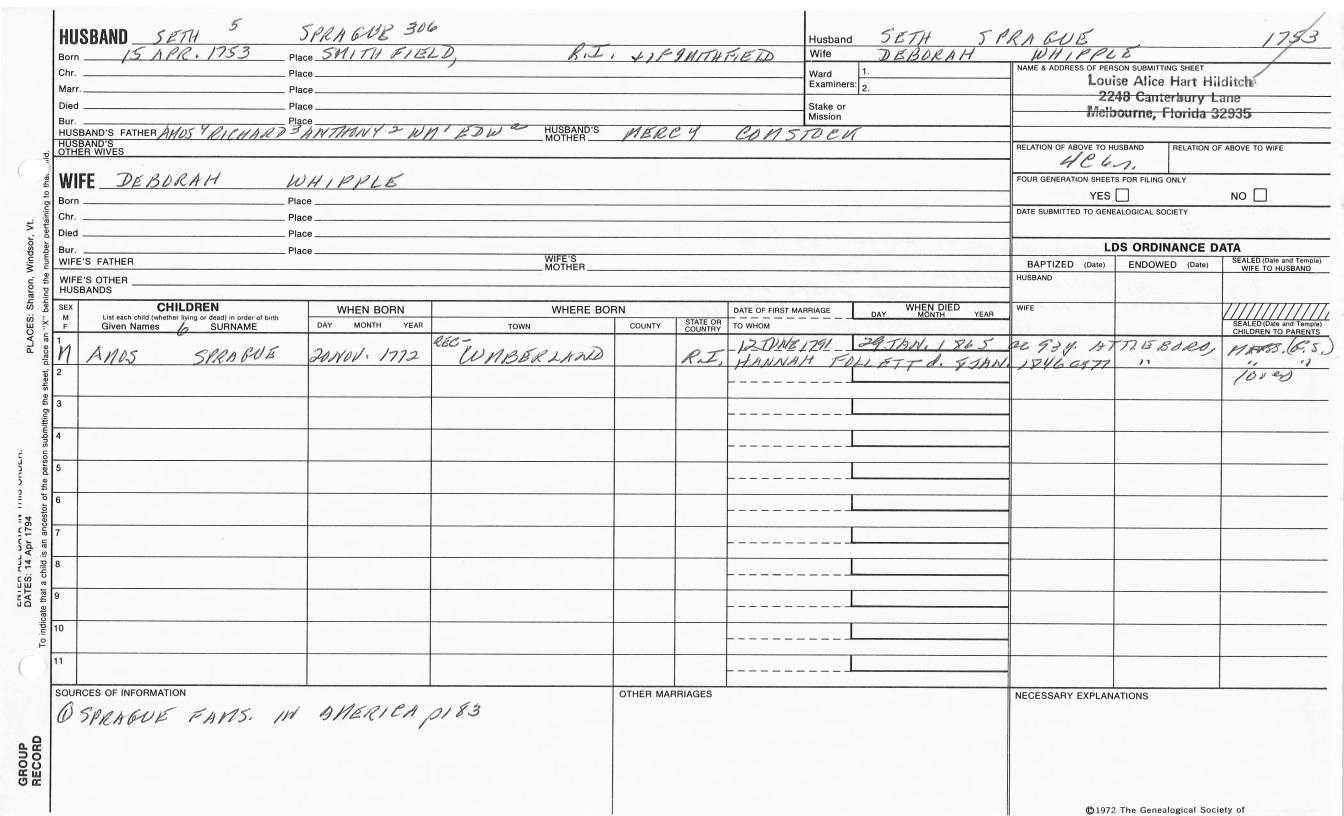 HUSBAND SETH 5 SPRAGUE 306
Born 15 APR. 1753 Place SMITHFIELD, R.I. SMITHFIELD
Chr. Place
Marr. Place
Died Place
Bur. Place
HUSBAND'S FATHER AMOS 4 RICHARD 3 ANTHONY 2 WM 1 EDW HUSBAND'S MOTHER MERCY COMSTOCK
HUSBAND'S OTHER WIVES
WIFE DEBORAH WHIPPLE
Born Place
Chr. Place
Died Place
Bur. Place
WIFE'S FATHER WIFE'S MOTHER
WIFE'S OTHER HUSBANDS
Husband SETH SPRAGUE 1753
Wife DEBORAH WHIPPLE
Ward Examiners: 1.
2.
Stake or Mission
NAME & ADDRESS OF PERSON SUBMITTING SHEET
Louise Alice Hart Hilditch
2248 Canterbury Lane
Melbourne, Florida 32935
RELATION OF ABOVE TO HUSBAND RELATION OF ABOVE TO WIFE
FOUR GENERATION SHEETS FOR FILING ONLY
YES NO
DATE SUBMITTED TO GENEALOGICAL SOCIETY
LDS ORDINANCE DATA
BAPTIZED (Date) ENDOWED (Date) SEALED (Date and Temple) WIFE TO HUSBAND
HUSBAND
WIFE
SEALED (Date and Temple) CHILDREN TO PARENTS
SEX M F
CHILDREN
List each child (whether living or dead) in order of birth
Given Names 6 SURNAME
WHEN BORN
DAY MONTH YEAR
WHERE BORN
TOWN COUNTY STATE OR COUNTRY
DATE OF FIRST MARRIAGE
TO WHOM
WHEN DIED
DAY MONTH YEAR
1 M AMOS SPRAGUE 20 NOV. 1772 REC- CUMBERLAND R.I. 12 JUNE 1791 29 JAN. 1865 ae 93y. ATTLEBORO, MASS. (G.S.)
HANNAH FOLLETT d. 8 JAN. 1846 ae77 " " "
2
3
4
5
6
7
8
9
10
11
SOURCES OF INFORMATION
① SPRAGUE FAMS. IN AMERICA p183
OTHER MARRIAGES
NECESSARY EXPLANATIONS
©1972 The Genealogical Society of
PLACES: Sharon, Windsor, Vt.
DATES: 14 Apr 1794
To indicate that a child is an ancestor of the person submitting the sheet, place an "X" behind the number pertaining to that child.
GROUP RECORD